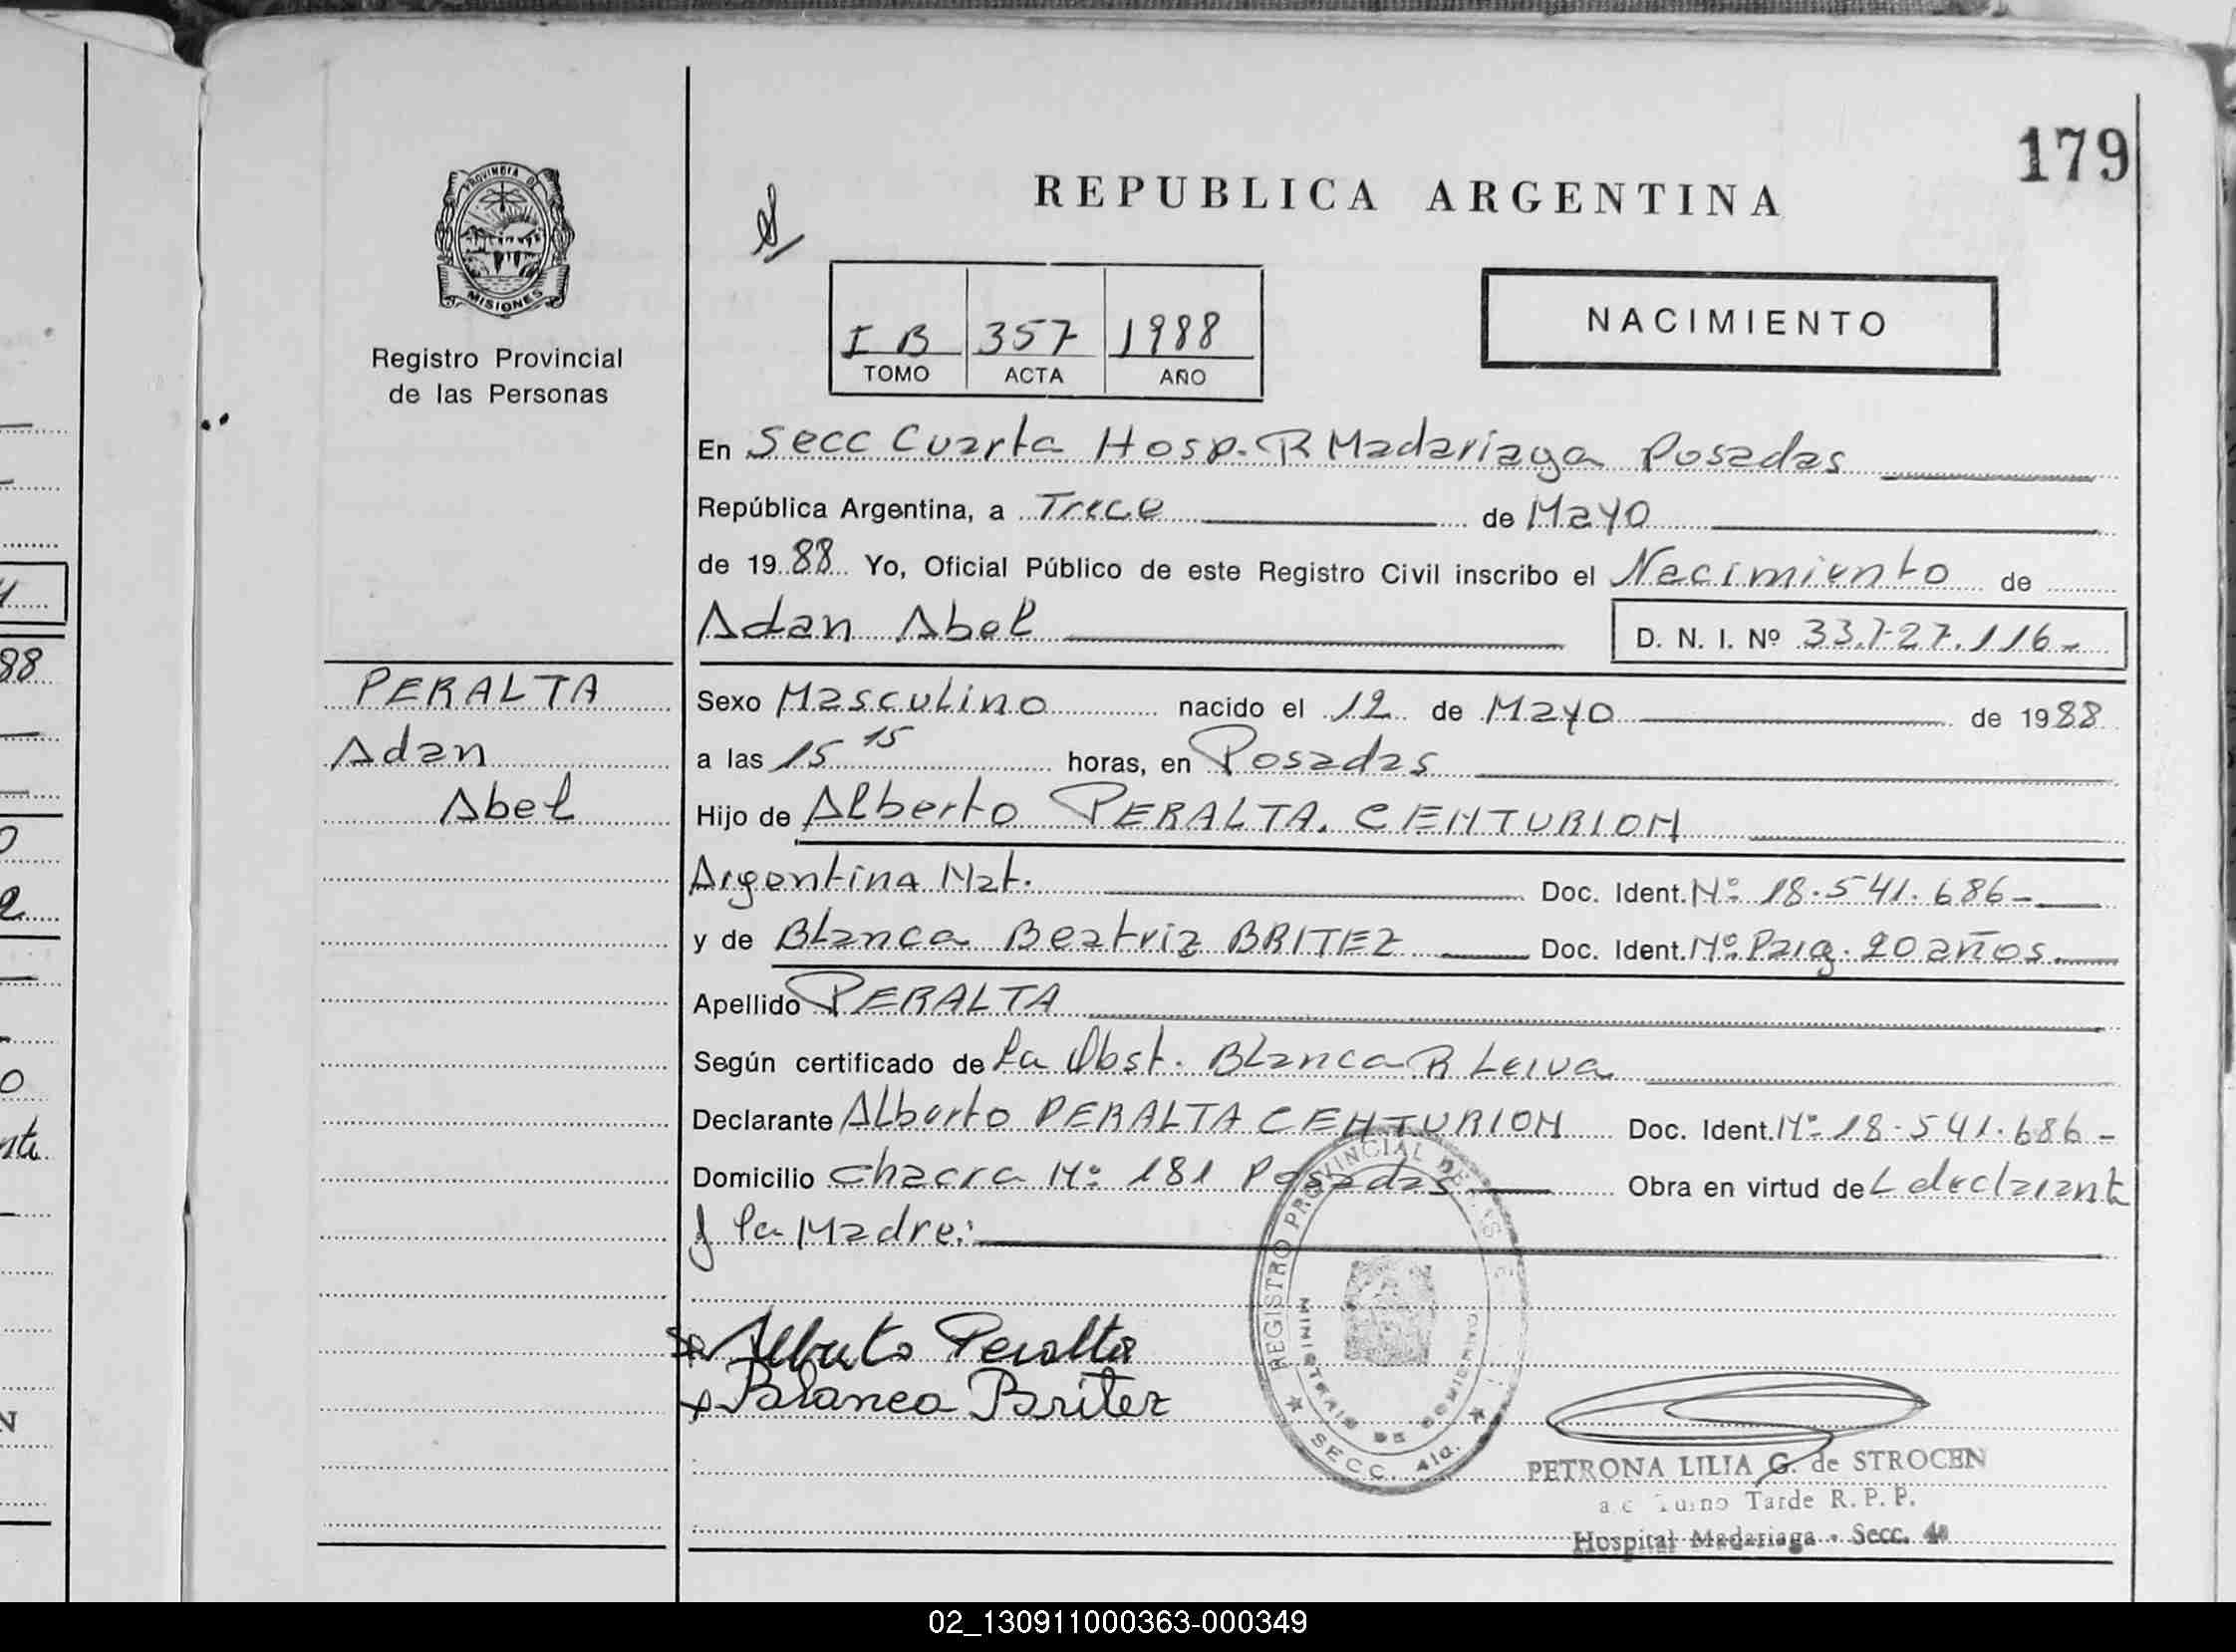 179
PROVINCIA DE
MISIONES
Registro Provincial
de las Personas
REPUBLICA ARGENTINA
I B 357 1988
TOMO ACTA AÑO
NACIMIENTO
En Secc Cuarta Hosp. R Madariaga Posadas
República Argentina, a Trece de Mayo
de 1988 Yo, Oficial Público de este Registro Civil inscribo el Nacimiento de
Adan Abel
D. N. I. Nº 33.727.116-
PERALTA
Adan
Abel
Sexo Masculino nacido el 12 de Mayo de 1988
a las 15 15 horas, en Posadas
Hijo de Alberto PERALTA. CENTURION
Argentina Nat. Doc. Ident. Nº 18.541.686-
y de Blanca Beatriz BRITEZ Doc. Ident. Nº Parg. 20 años.
Apellido PERALTA
Según certificado de la Obst. Blanca R Leiva
Declarante Alberto PERALTA CENTURION Doc. Ident. Nº 18.541.686-
Domicilio chacra Nº 181 Posadas Obra en virtud de L declarante
y la Madre:
Alberto Peralta
Blanca Britez
REGISTRO PROVINCIAL DE LAS
MINISTERIO DE GOBIERNO
SECC. 4ta.
PETRONA LILIA G. de STROCEN
a c Turno Tarde R. P. P.
Hospital Madariaga - Secc. 4a
02_130911000363-000349